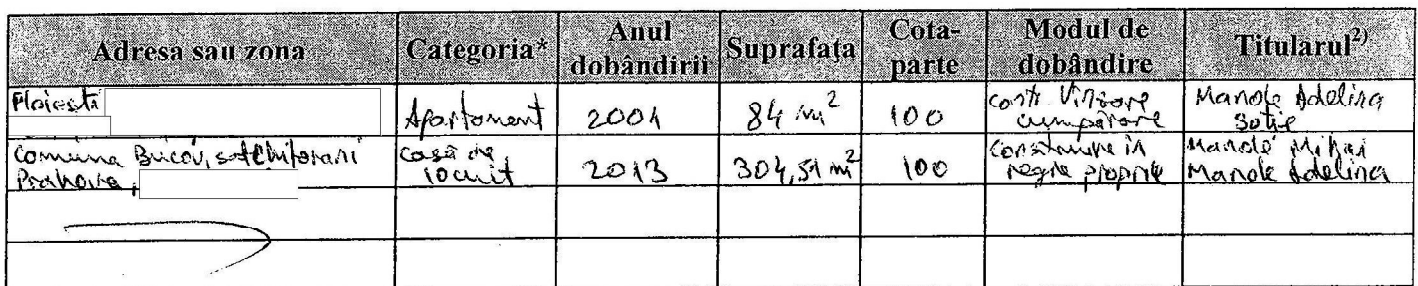 Adresa sau zona Categoria* Anul dobândirii Suprafaţa Cota-parte Modul de dobândire Titularul2)
Ploiesti Apartoment 2001 84 m2 100 contr Vinzare cumpărare Manole Adelina Soție
Comuna Bucov, sat Chitorani Prahova, Casă de locuit 2013 304,51 m2 100 Construire în regie proprie Manole Mihai Manole Adelina